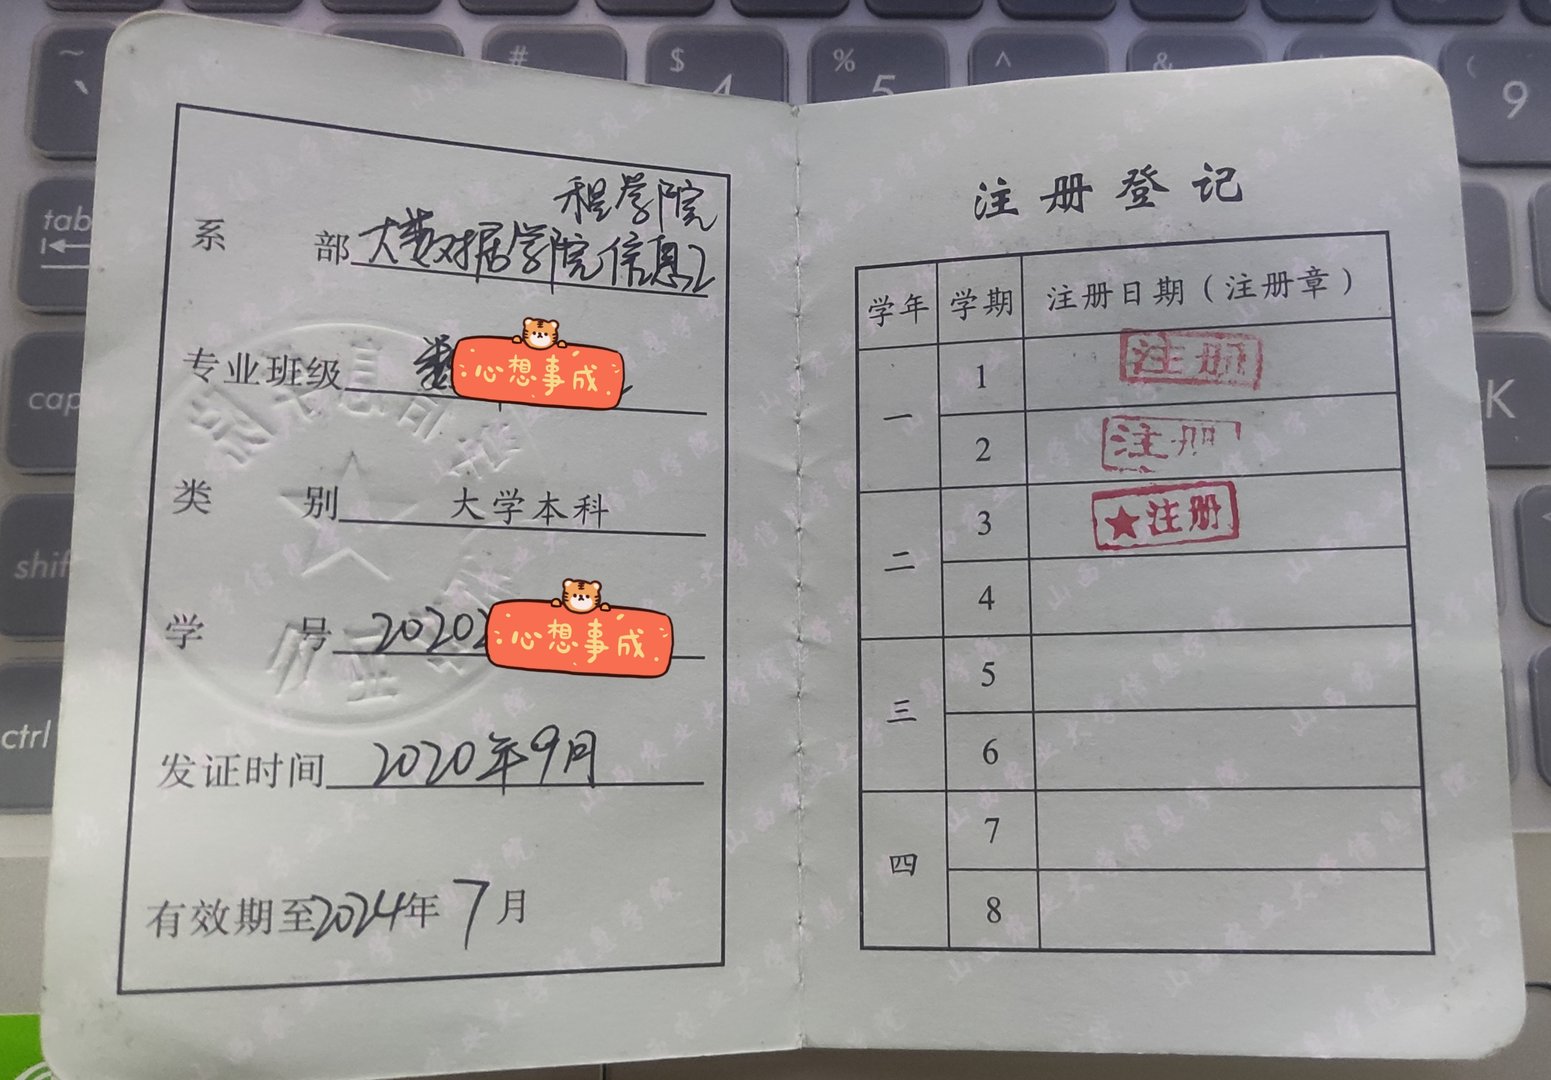 系 部 大数据学院信息工
程学院
专业班级 数
心想事成
类 别 大学本科
学 号 2020
心想事成
发证时间 2020年9月
有效期至2024年7月
注册登记
学年 学期 注册日期（注册章）
一 1 注册
2 注册
二 3 ★注册
4
三 5
6
四 7
8
~
`
#
$
4
%
5
^
&
(
9
tab
cap
K
shif
ctrl